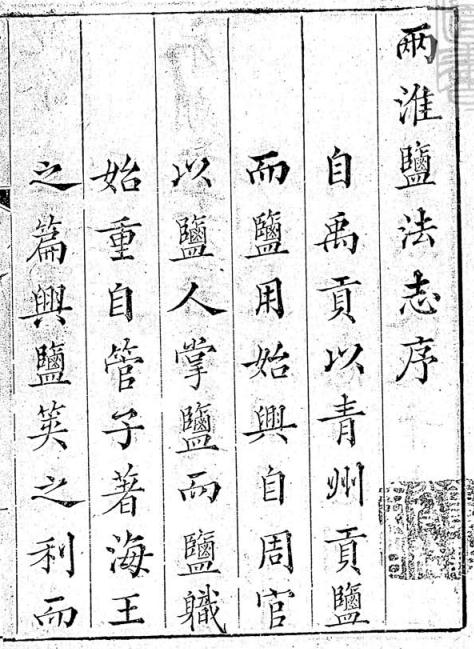 兩淮鹽法志序
自禹貢以青州貢鹽
而鹽用始興自周官
以鹽人掌鹽而鹽職
始重自管子著海王
之篇興鹽筴之利而